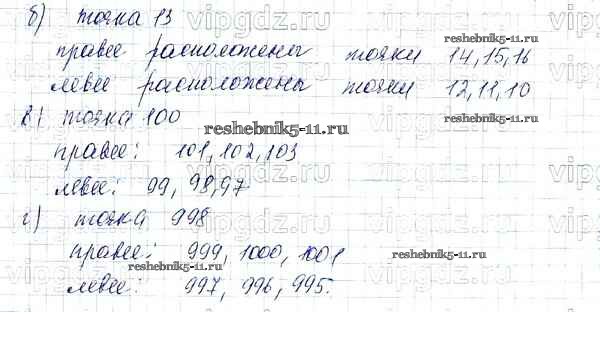 б) точка 13
правее расположены точки 14, 15, 16
левее расположены точки 12, 11, 10
в) точка 100
правее: 101, 102, 103
левее: 99, 98, 97
г) точка 998
правее: 999, 1000, 1001
левее: 997, 996, 995.
reshebnik5-11.ru
reshebnik5-11.ru
reshebnik5-11.ru
reshebnik5-11.ru
reshebnik5-11.ru
vipgdz.ru
vipgdz.ru
vipgdz.ru